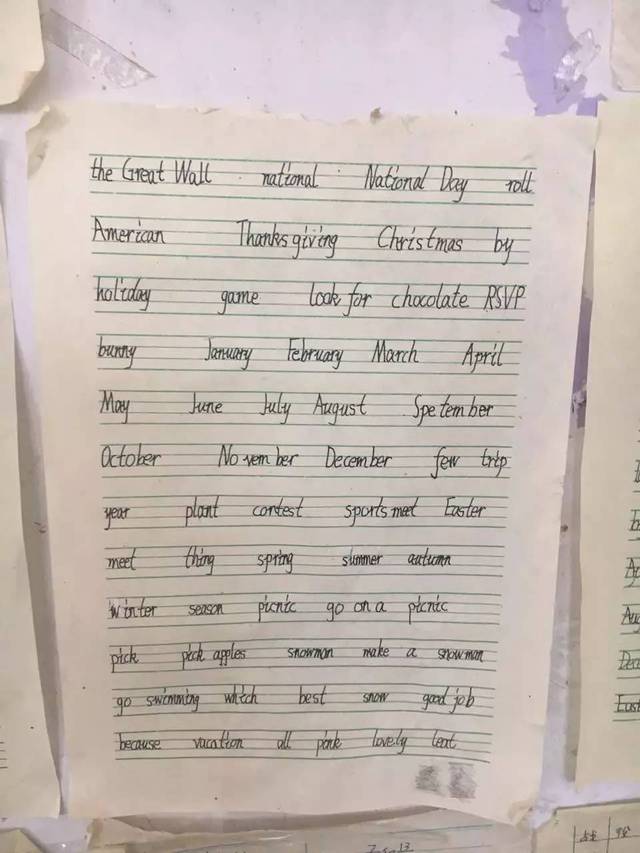 the Great Wall national National Day roll
American Thanksgiving Christmas by
holiday game look for chocolate RSVP
bunny January February March April
May June July August Spetember
October November December few trip
year plant contest sports meet Easter
meet thing spring summer autumn
winter season picnic go on a picnic
pick pick apples snowman make a snowman
go swimming which best snow good job
because vacation all pink lovely leat